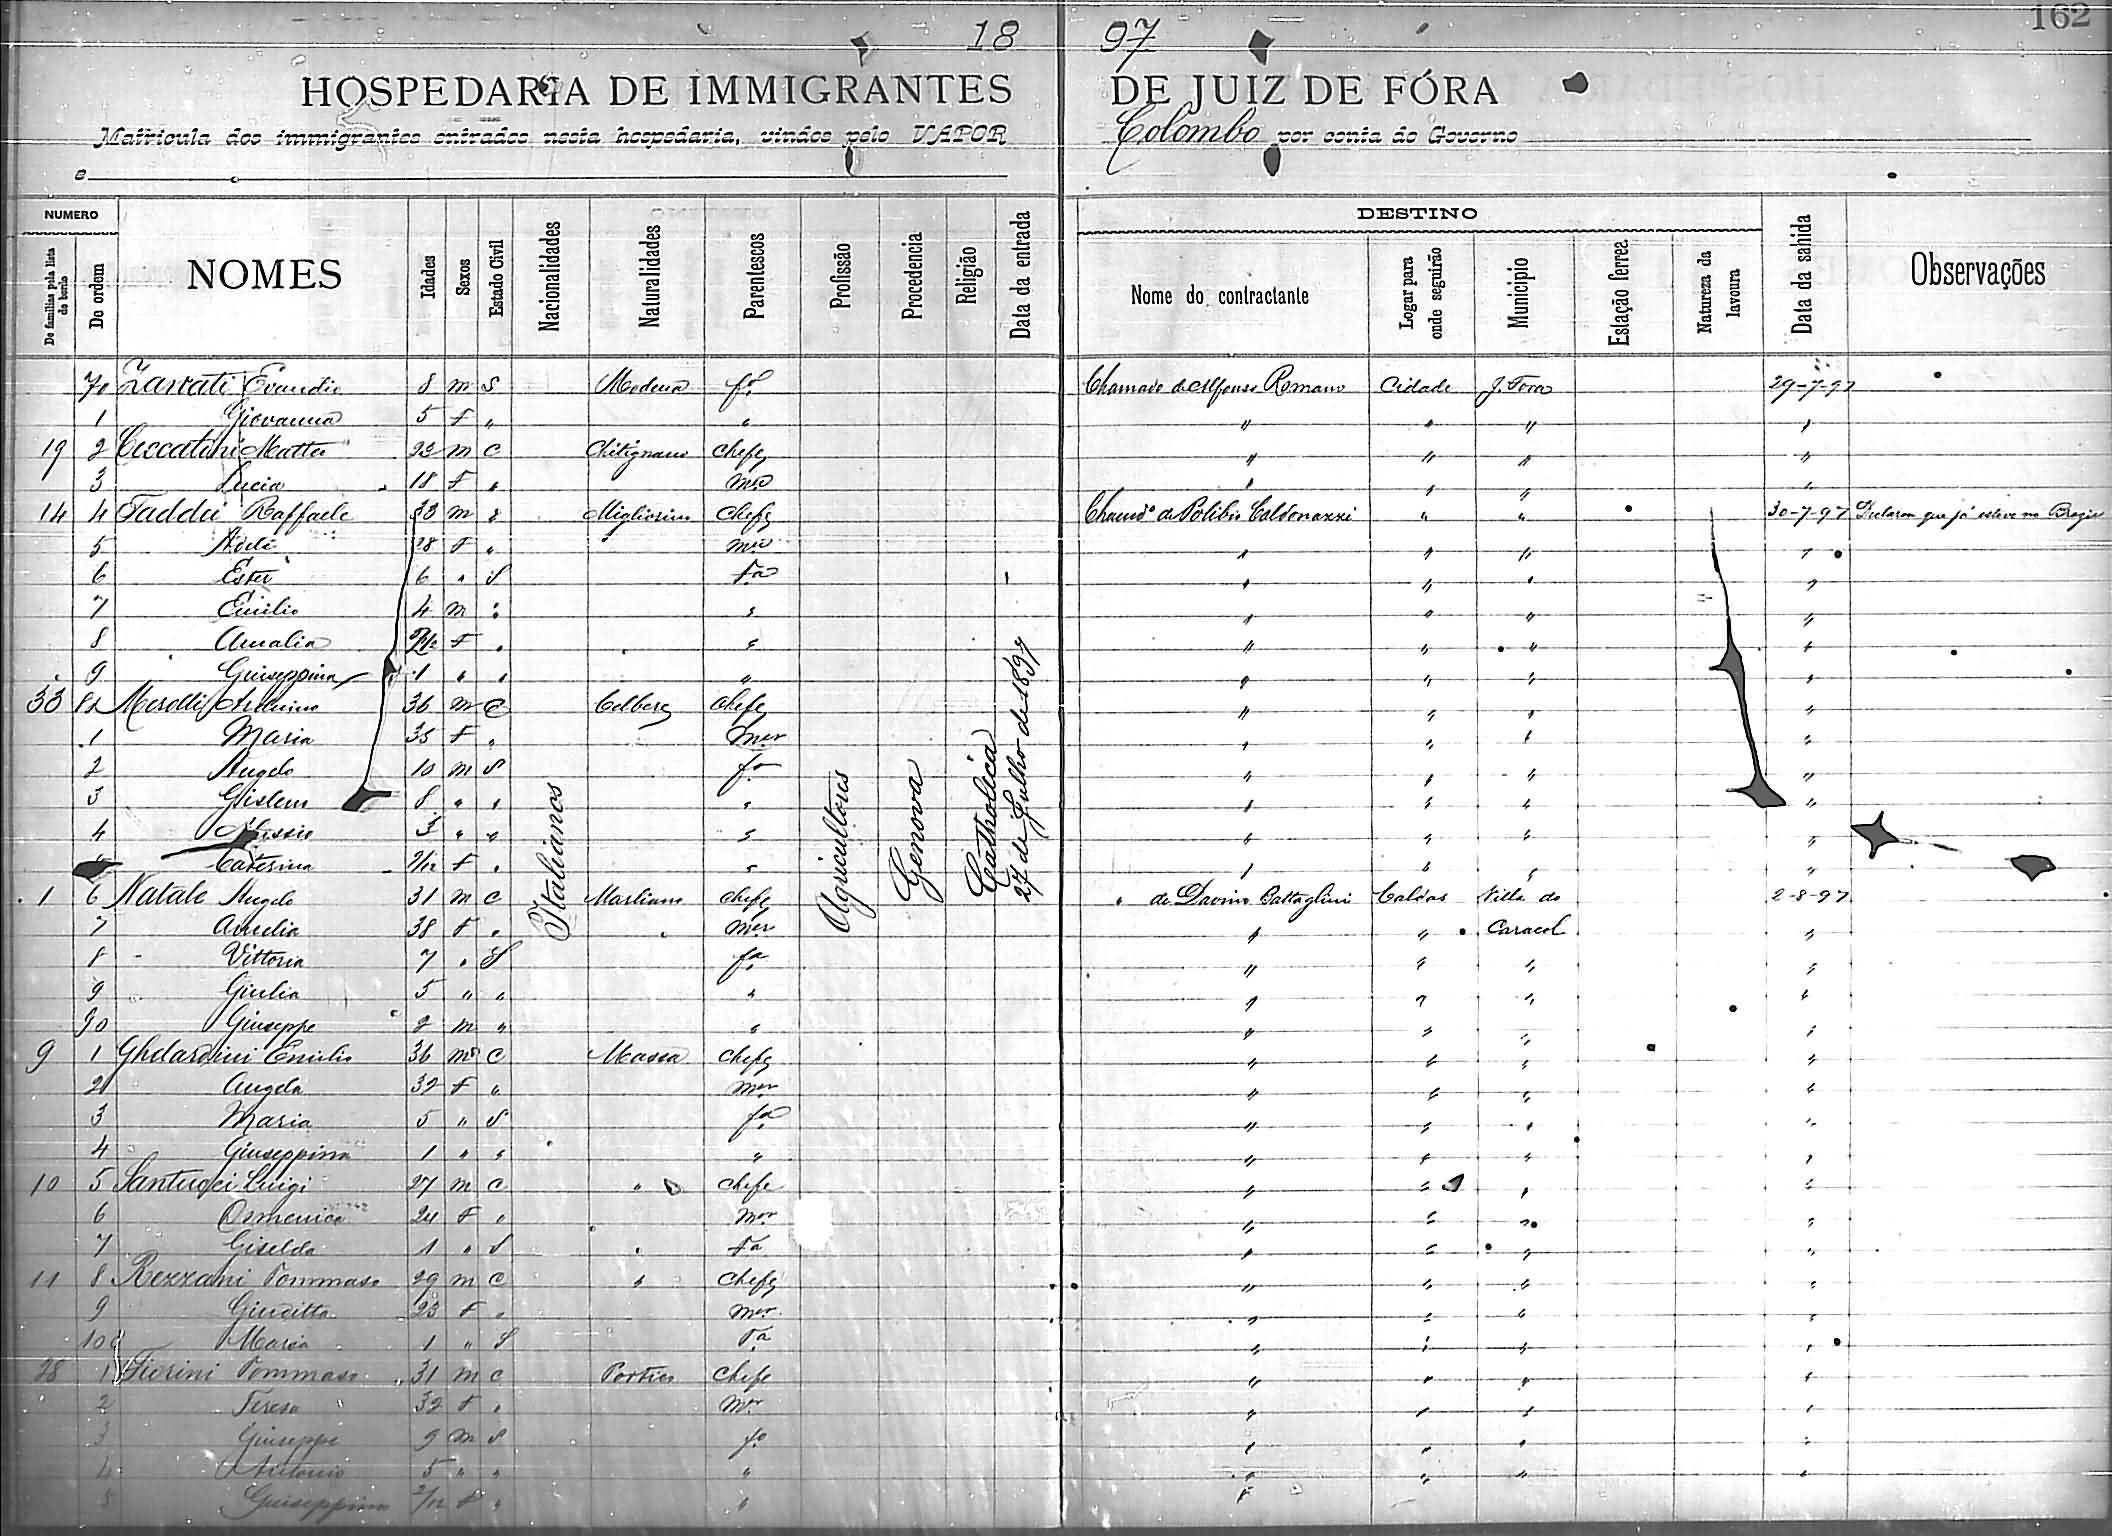 162
18 97
HOSPEDARIA DE IMMIGRANTES DE JUIZ DE FÓRA
Matricula dos immigrantes entrados nesta hospedaria, vindos pelo VAPOR Colombo por conta do Governo
e
NUMERO DESTINO
De familias pela lista de bordo De ordem NOMES Idades Sexos Estado Civil Nacionalidades Naturalidades Parentescos Profissão Procedencia Religião Data da entrada Nome do contractante Logar para onde seguirão Municipio Estação ferrea Natureza da lavoura Data da sahida Observações
Italianos Agricultores Genova Catholica 27 de Julho de 1897
70 Zarrati 8 m S Modena fo Chamado de Affonso Romano Cidade J. Fora 29-7-97
1 Giovanna 5 F " " " " " "
19 2 Ceccatini Matteo 23 m C Chitignano Chefe " " " "
3 Lucia 18 F " mer " " " "
14 4 Taddei Raffaele 33 m " Migliorino Chefe Chamdo de Polibio Caldonazzi " " 30-7-97 Declaram que já esteve no Brazil
5 28 F " mer " " " "
6 Ester 6 " S Fa " " " "
7 Emilio 4 m " " " " " "
8 Amalia F " " " " " "
9 Guiseppina 1 " " " " " " "
33 80 Merolli 36 m C Chefe " " " "
1 Maria 35 F " Mer " " " "
2 Angelo 10 m S fo " " " "
3 8 " " " " " " "
4 3 " " " " " " "
Caterina F " " " " " "
1 6 Natale Angelo 31 m C Marliano Chefe " de Davino Battaglini Caldas Villa do 2-8-97
7 Amelia 38 F " " Mer " " Caracol "
8 Vittoria 7 " S fa " " " "
9 Giulia 5 " " " " " " "
90 Giuseppe 2 m " " " " " "
9 1 Ghelardini Emilio 36 m C Massa Chefe " " " "
2 Angela 32 F " mer " " " "
3 Maria 5 " S fa " " " "
4 Giuseppina 1 " " " " " " "
10 5 Santucci Luigi 27 m C " Chefe " " " "
6 Domenica 24 F " Mer " " " "
7 Giselda 1 " S " Fa " " " "
11 8 Rezzani Tommaso 29 m C " Chefe " " " "
9 Giuditta 23 F " Mer " " " "
100 Maria 1 " S Fa " " " "
28 1 Fiorini Tommaso 31 m C Portico Chefe " " " "
2 Teresa 32 F " Mr " " " "
3 Giuseppe 9 m S fo " " " "
4 Antonio 5 " " " " " " "
5 Guiseppina 2/12 F " " "